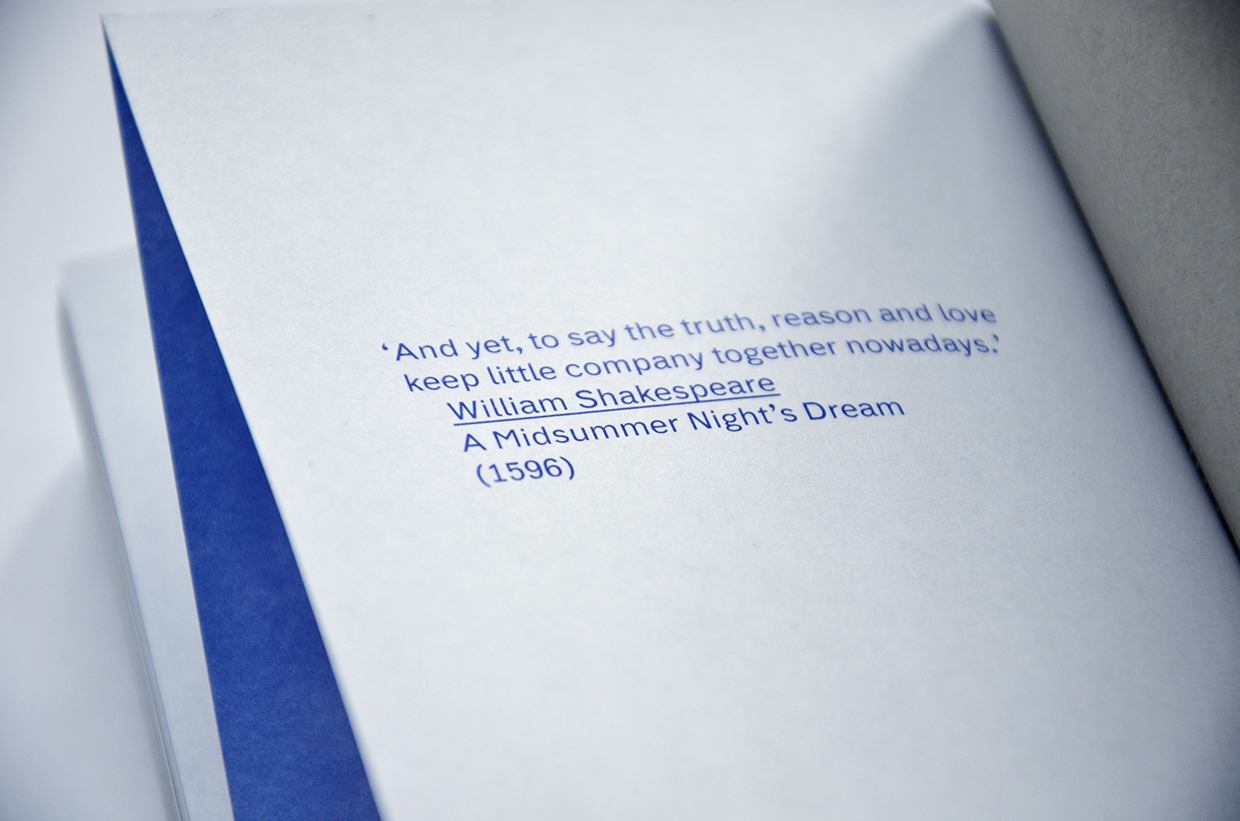 ‘And yet, to say the truth, reason and love
keep little company together nowadays.’
William Shakespeare
A Midsummer Night’s Dream
(1596)